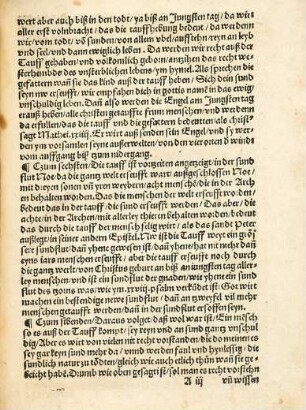 wert aber auch biß in den todt / ya biß an Jungsten tag / da wirt
aller erst volnbracht / das die tauffhebung bedeut / da werden
wir / vom todt / võ sunden / von allen vbel / auffstehn reyn an leyb
vnd seel / vnd dann ewiglich leben. Da werden wir recht auß der
Tauff gehaben / vnd volkomlich geborn / antzihen das recht we⸗
sterhembd des vnsterblichen lebens / ym hymel. Als sprechen die
gefattern wan sie das kind auß der tauff heben / Sich dein sund
seyn nw erseufft / wir empfahen dich in gottis name in das ewig⸗
vnschuldig leben. Dañ also werden die Engel am Jungsten tag
erauß heben / alle christen getauffte frum menschen / vnd werden
da erfullen / das die tauff vnd die gefattern bedeuten / als christs
sagt Mathei. xxiiij. Er wirt auß senden sein Engel / vnd sy wer⸗
den ym versamlen seyne außerwelten / von den vier orten d winde
vom auffgang biß zum nidergang.
¶ Czum sechsten / Die tauff ist vortzeiten antzeigt / in der sund
flut Noe / da die gantz welt erseufft ward / außgeschlossen Noe /
mit dreyen sonen vñ yren weybern / acht mensche / die in der Arch
en behalten worden. Das die menschen der welt erseufft worden /
bedeut das in der tauff / die sund erseufft werden. Das aber / die
achte / in der Archen / mit allerley thierẽ behalten worden / bedeut
das durch die tauff der mensch selig wirt / als das sandt Peter
außlegt / in siner andern Epistel. Nw ist die Tauff weyt ein grös
ser sundflut / dañ yhene gewesen ist / dañ yhene / hat nit mehr dañ
eyns iars menschen erseufft / Aber die tauff erseufft noch durch
die gantz werlt / von Christus geburt an biß an iungsten tag aller
ley menschen / vnd ist ein sundflut der gnaden / wie yhene ein sund
flut des zorns was / wie ym. xxviij. psalm vorkũdet ist. Got wirt
machen ein bestendige newe sundflut / dañ an zweyfel vil mehr
menschen getaufft werden / dañ in der sundflut ersoffen seyn.
¶ Czum sibenden / Daraus volget / das wol war ist / Ein mẽsch
so es auß der Tauff kompt / sey reyn vnd an sund gantz vnschul
dig / Aber es wirt von vielen nit recht vorstanden / die do meinen es
sey gar keyn sund mehr da / vnnd werden faul vnd hynlessig / die
sundlich natur zu tödten / gleich wie auch etlich thun / wañ sie ge⸗
beicht habẽ. Drumb wie oben gesagt ist / sol man es recht vorstehn
A iij vñ wissen